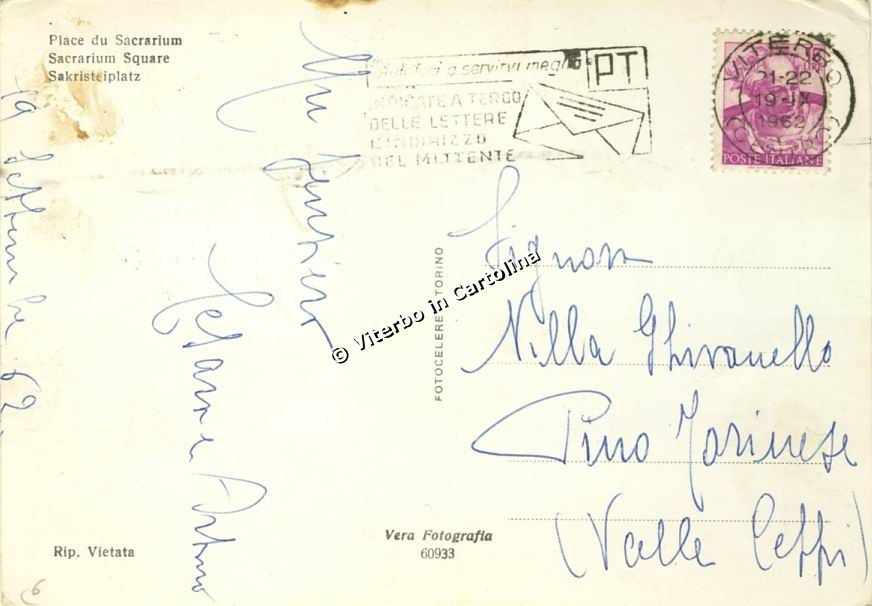 Place du Sacrarium
Sacrarium Square
Sakristeiplatz
19 Settembre 62
Un pensiero
Cesare
"Aiutateci a servirvi meglio"
INDICATE A TERGO
DELLE LETTERE
L'INDIRIZZO
DEL MITTENTE
PT
VITERBO
21-22
19-IX
1962
LIRE
POSTE ITALIANE
FOTOCELERE TORINO
© Viterbo in Cartolina
Signora
Villa Ghivanello
Pino Torinese
(Valle Ceppi)
Rip. Vietata
Vera Fotografia
60933